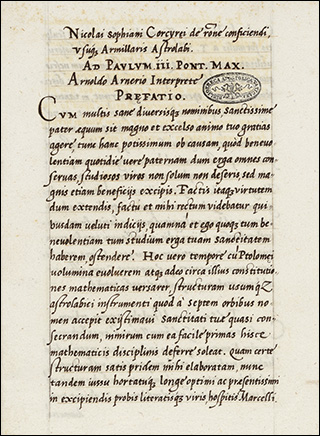 Nicolai Sophiani Corcyrei de rõne conficiendi,
vsuq; Armillaris Astrolabi.
AD PAVLVM III. PONT. MAX.
Arnoldo Arnerio Interprete
PRĘFATIO.
CVM multis sane diuersisq; nominibus sanctissime
pater ęquum sit magno et excelso animo tuo gratias
agere, tunc hanc potissimum ob causam, quòd beneuo-
lentiam quotidie uere paternam dum erga omnes con-
seruas, studiosos uiros non solum non deseris, sed ma-
gnis etiam beneficijs excipis. Factis itaq; uirtutem
dum extendis, factu et mihi rectum uidebatur qui-
busdam ueluti indicijs, quamnã et ego quoq; tum be-
neuolentiam tum studium erga tuam sanctitatem
haberem, ostendere. Hoc uero tempore cũ Ptolomei
uolumina euoluerem atq; adeo circa illius constitutio-
nes mathematicas uersarer, structuram usumq;
astrolabici instrumenti quod à septem orbibus no-
men accepit existimaui Sanctitati tuę quasi con-
secrandum, nimirum cum ea facile primas hisce
mathematicis disciplinis deferre soleat. Quam certe
structuram satis pridem mihi elaboratam, nunc
tandem iussu hortatuq; longe optimi ac pręsentissimi
in excipiendis probis literatisq; uiris hospitis Marcelli.